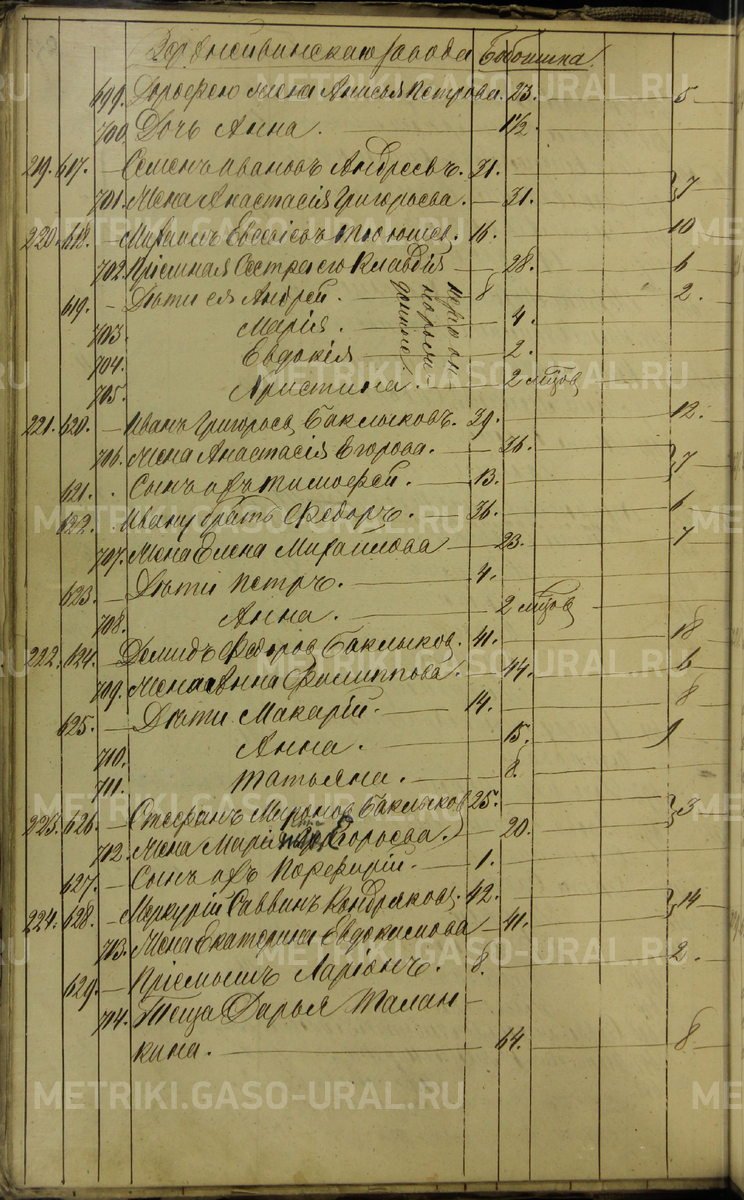 завода
699. Дорофею жена Анисья Петрова. 23. 5
700. Дочь Анна. 1 1/2.
219. 617. Семенъ Ивановъ Андреевъ. 31.
701. Жена Анастасія Григорьева. 31. 7
220. 618. Михаилъ Евсевіевъ 16. 10
702. Пріемная Сестра его Клавдія 28. 6
619. Дѣти ея Андрей. 8 2.
703. Марія. 4.
704. Евдокія 2.
705. Христина. 2 мѣсяц
221. 620. Иванъ Григорьев Баклыковъ. 39. 12.
706. Жена Анастасія Егорова. 36. 7
621. Сынъ ихъ Тимофей. 13.
622. Ивану братъ Ѳедоръ. 36. 6
707. Жена Елена Михаилова 23. 7
623. Дѣти Петръ. 4.
708. Анна. 2 мѣсяц
222. 624. Демидъ Ѳедоров Баклыков. 41. 18
709. Жена Анна Филиппова. 44. 6
625. Дѣти Макарій. 14. 8
710. Анна. 15. 1
711. Татьяна. 8.
223. 626. Стефанъ Миронов Баклыков 25. 3
712. Жена Марія Григорьева. 20.
627. Сынъ ихъ Порфирій. 1.
224. 628. Меркурій Саввинъ Кондраков. 42. 14
713. Жена Екатерина Евдокимова 41.
629. Пріемышъ Ларіонъ. 8. 2.
714. Теща Дарья Талан-
кина. 64. 8
METRIKI.GASO-URAL.RU